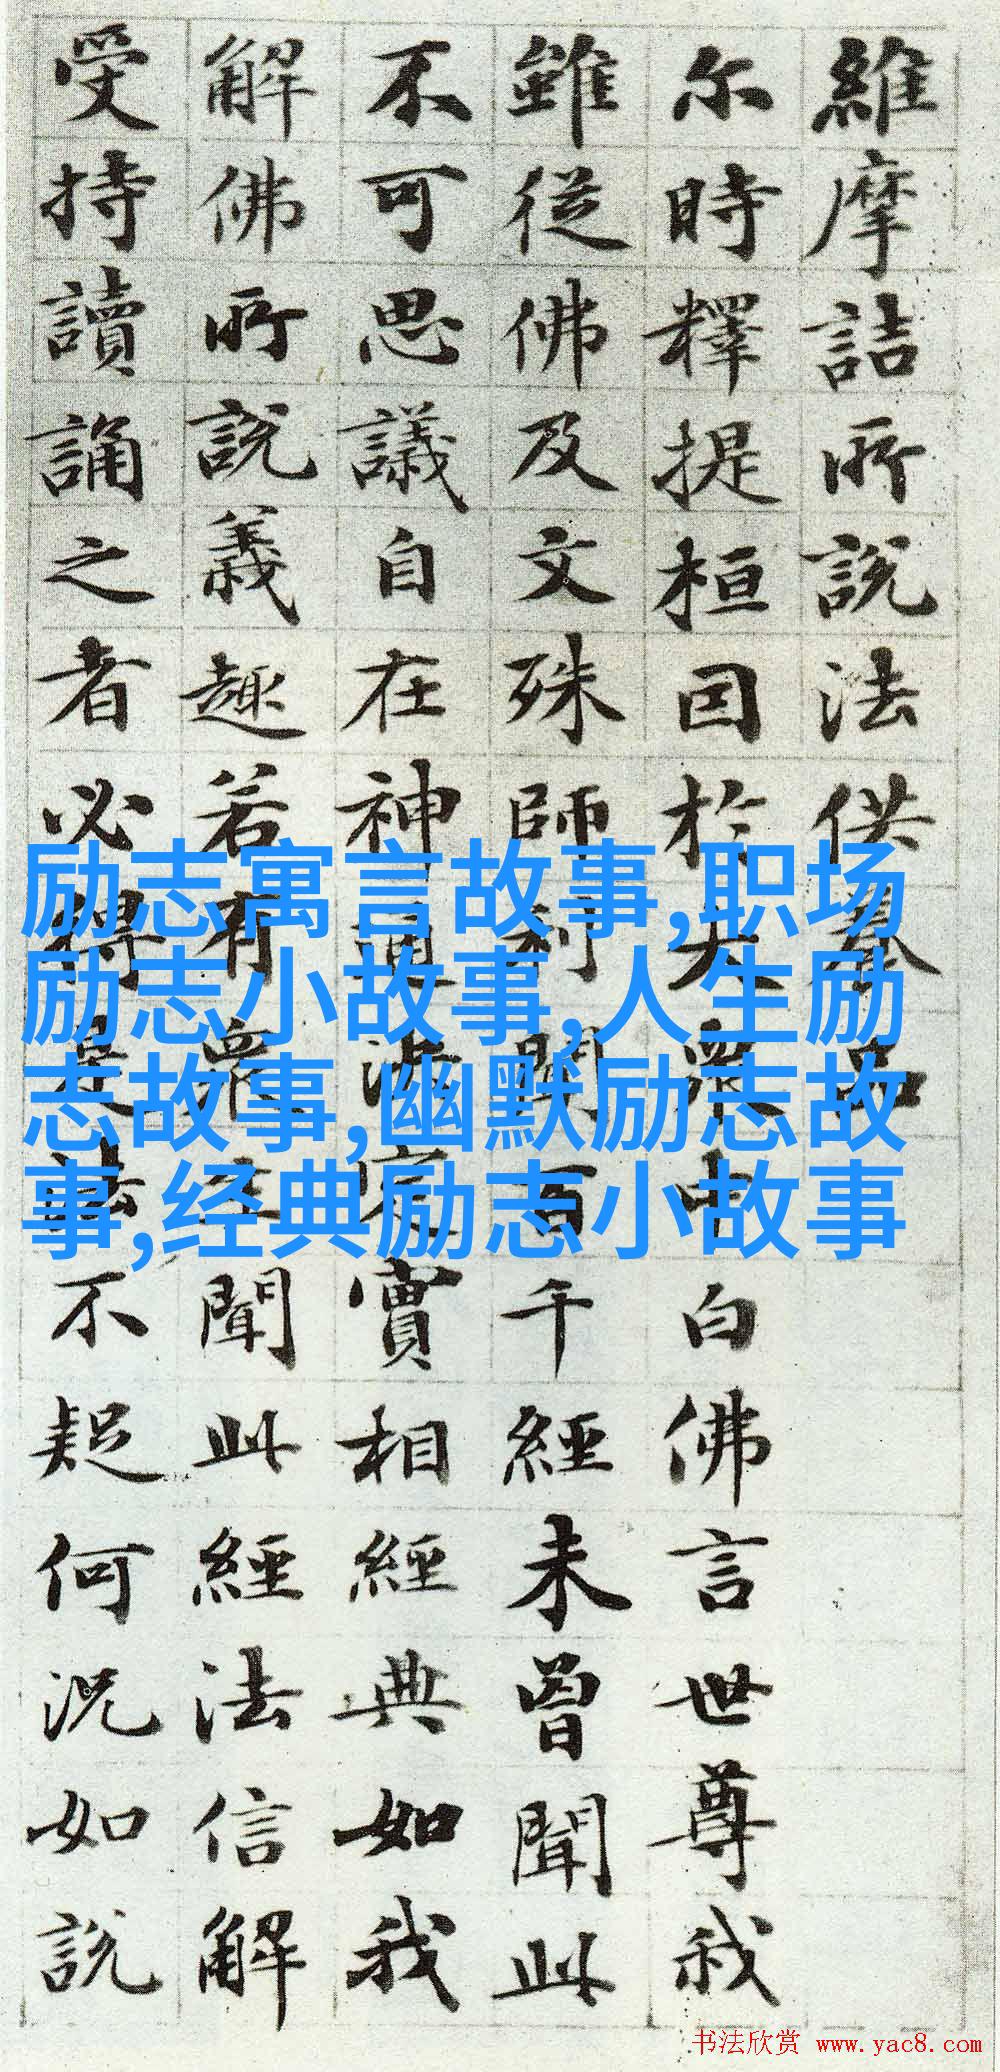 維摩詰所說法供養品
尔時釋提桓因於大衆中白佛言世尊我
雖從佛及文殊師利聞百千經未曾聞此
不可思議自在神通決定實相經典如我
解佛所說義趣若有衆生聞此經法信解
受持讀誦之者必得是法不疑何況如說
励志寓言故事,职场
励志小故事,人生励
志故事,幽默励志故
事,经典励志小故事
书法欣赏 www.yac8.com